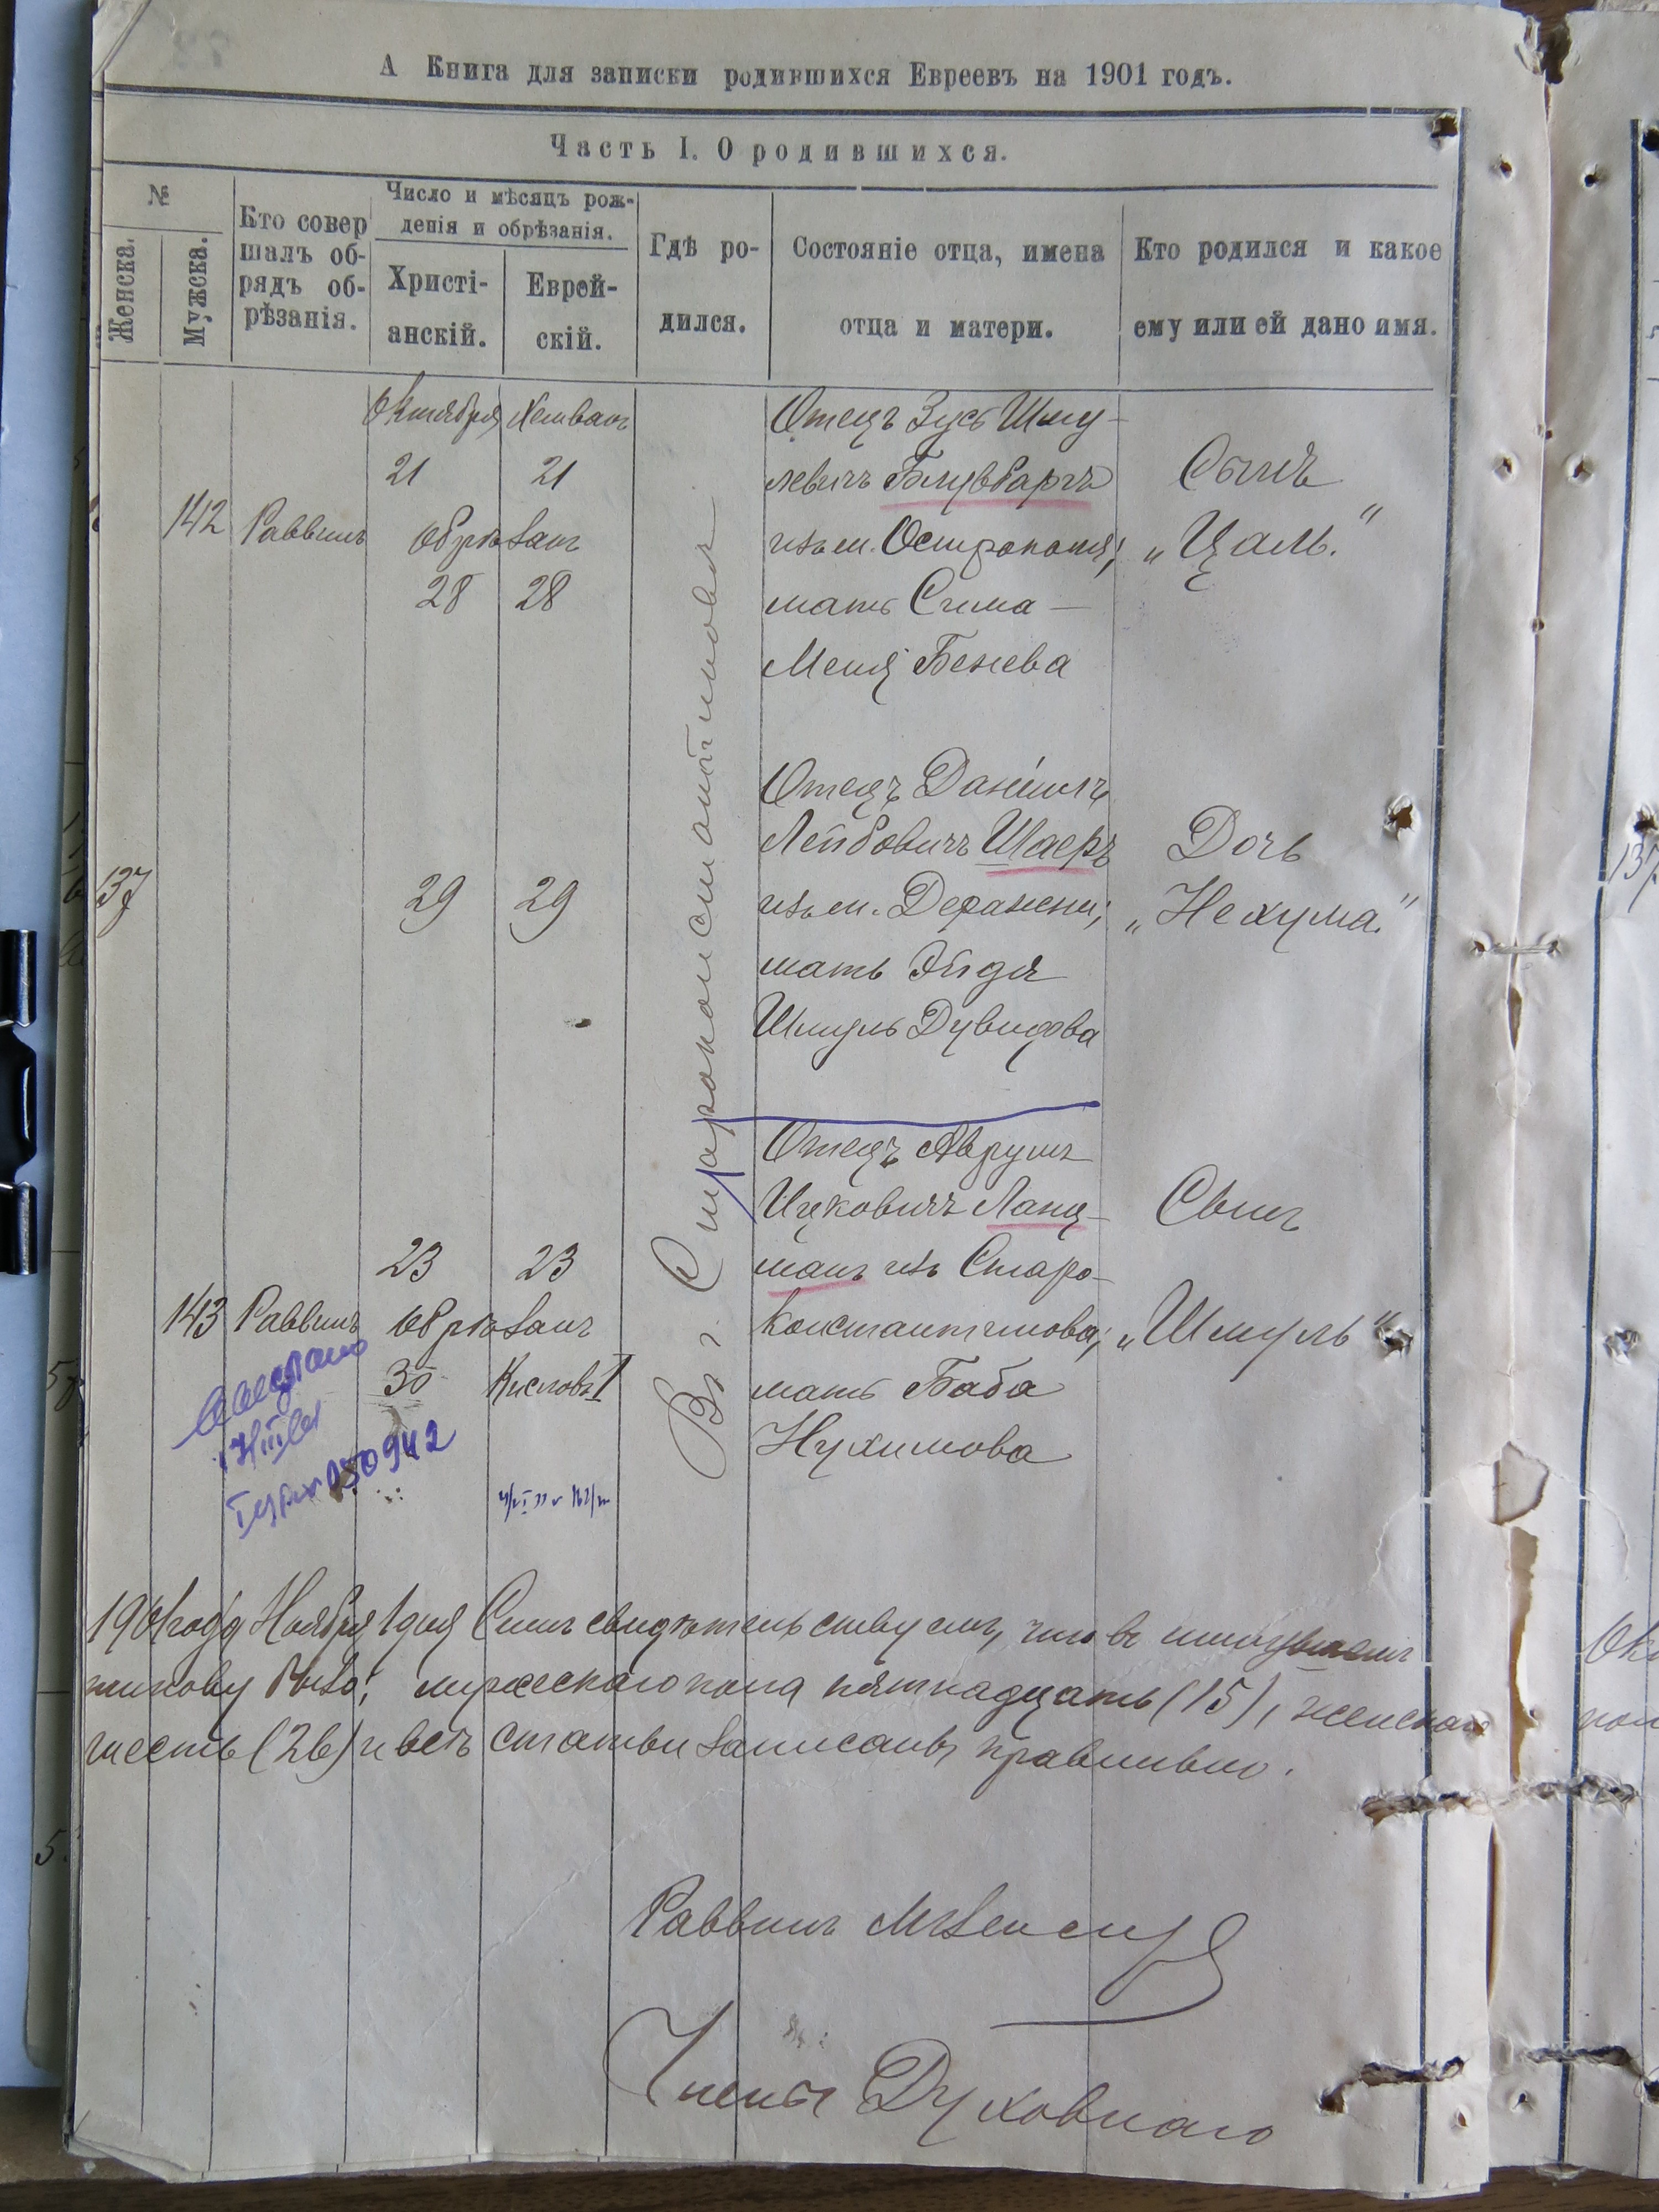 А Книга для записки родившихся Евреевъ на 1901 годъ.
Часть I. О родившихся.
№
Женска.
Мужска.
Кто совер
шалъ об-
рядъ об-
рѣзанія.
Число и мѣсяцъ рож-
денія и обрѣзанія.
Христі-
анскій.
Еврей-
скій.
Гдѣ ро-
дился.
Состояніе отца, имена
отца и матери.
Кто родился и какое
ему или ей дано имя.
Въ г. Староконстантиновѣ
Октября Хешванъ
21 21
142 Раввинъ обрѣзанъ
28 28
Отецъ Зусь Шму-
левичъ
изъ м. Острополя;
мать Сима-
Меня Бенева
Сынъ
„Цаль."
137
29 29
Отецъ Даніилъ
Лейбовичъ Шаеръ
изъ м. Деражни;
мать Эйдя
Шмуль Дувидова
Дочь
„Нехума."
23 23
143 Раввинъ обрѣзанъ
30 Кислевъ 1
Отецъ Аврумъ
Ицковичъ Ланц-
манъ изъ Старо-
константинова;
мать Баба
Нухимова
Сынъ
„Шмуль"
050942
1901 года Ноября 1 дня Симъ свидѣтельствуемъ, что въ
мужескаго пола пятнадцать (15), женскаго
шесть (26) и всѣ статьи записаны правильно.
Раввинъ
Члены Духовнаго